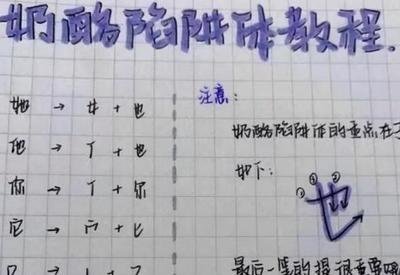 奶酪陷阱体教程.
她 → 女 + 也
他 → 亻 + 也
你 → 亻 + 尔
它 → 宀 + 匕
注意:
奶酪陷阱体的重点在于
如下:
① ② ③
也
最后一笔的提很重要哦